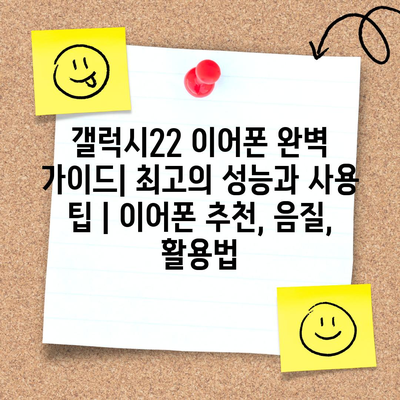 갤럭시22 이어폰 완벽
가이드| 최고의 성능과 사용
팁 | 이어폰 추천, 음질,
활용법